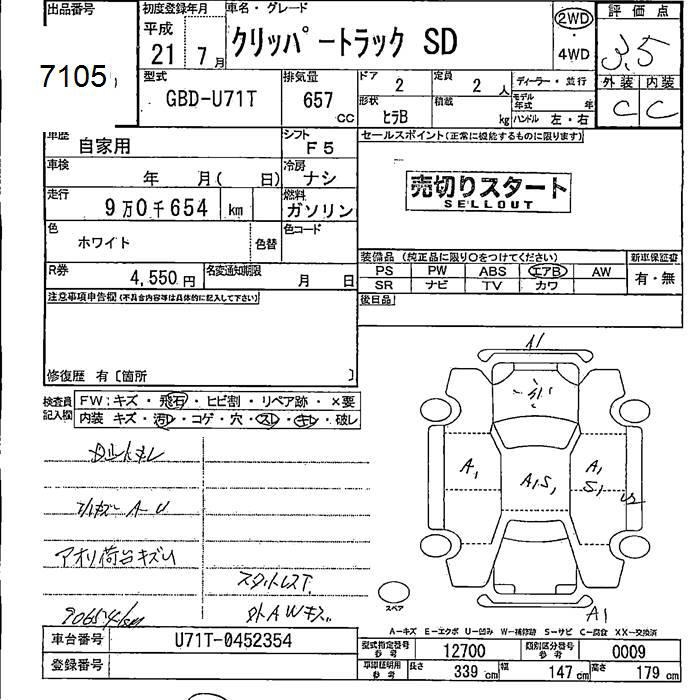 出品番号 初度登録年月 車名・グレード 評価点
7105
平成 21 年 7 月
クリッパートラック SD
2WD
・
4WD
3.5
型式 排気量 ドア 定員 ディーラー・並行 外装 内装
GBD-U71T 657 CC 2 2 人
モデル年式 年
C C
形状 積載 ハンドル 左・右
ヒラB kg
車歴 シフト セールスポイント(正常に機能するものに限ります)
自家用 F5
車検 冷房
年 月( 日) ナシ
売切りスタート
SELLOUT
走行 燃料
9万0千654 km ガソリン
色 色替 色コード
ホワイト
装備品 (純正品に限り〇をつけてください) 新車保証書
PS PW ABS エアB AW 有・無
SR ナビ TV カワ
R券 名変通知期限
4,550 円 月 日
後日品
注意事項申告欄(不具合内容等は具体的に記入して下さい)
修復歴 有〔箇所 〕
検査員記入欄
FW:キズ・飛石・ヒビ割・リペア跡・×要
内装 キズ・汚レ・コゲ・穴・スレ・キレ・破レ
A1
A1
A1S1
A1
S1
アオリ荷台キズU
スタットレスT.
スペア
A1
A-キズ E-エクボ U-凹み W-補修跡 S-サビ C-腐食 XX-交換済
車台番号 U71T-0452354
型式指定番号 参考 12700 類別区分番号 参考 0009
登録番号
車庫証明用 参考 長さ 339 cm 幅 147 cm 高さ 179 cm